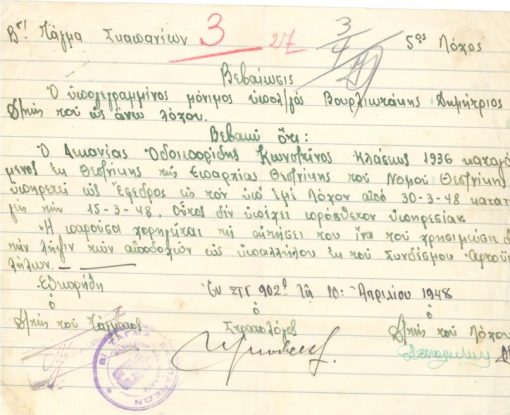 Βον Τάγμα Σκαπανέων 3 27 3/4 5ος Λόχος
Βεβαίωσις
Ο υπογεγραμμένος μόνιμος υπολ/γός Βουρλιωτάκης Δημήτριος
Δ/τής του ως άνω λόχου.
Βεβαιοί ότι:
Ο Δεκανέας Οδοιπορίδης Κων/τίνος κλάσεως 1936 καταγό
μενος εκ Θεσ/νίκης της Επαρχίας Θεσ/νίκης του Νομού Θεσ/νίκης
υπηρετεί ως έφεδρος εις τον υπ' εμέ λόχον από 30-3-48 καταταγ
είς την 15-3-48. Ούτος δεν υπέχει πρόσθετον υπηρεσίαν
Η παρούσα χορηγείται τη αιτήσει του ίνα του χρησιμεύση δ
την λήψιν των αποδοχών ως υπαλλήλου εκ του Συνδέσμου
λήλων.
Εθεωρήθη Εν ΣΤΓ 902β τη 10: Απριλίου 1948
ο ο ο
Δ/τής του Τάγματος Στρατολόγος Δ/τής του Λόχου